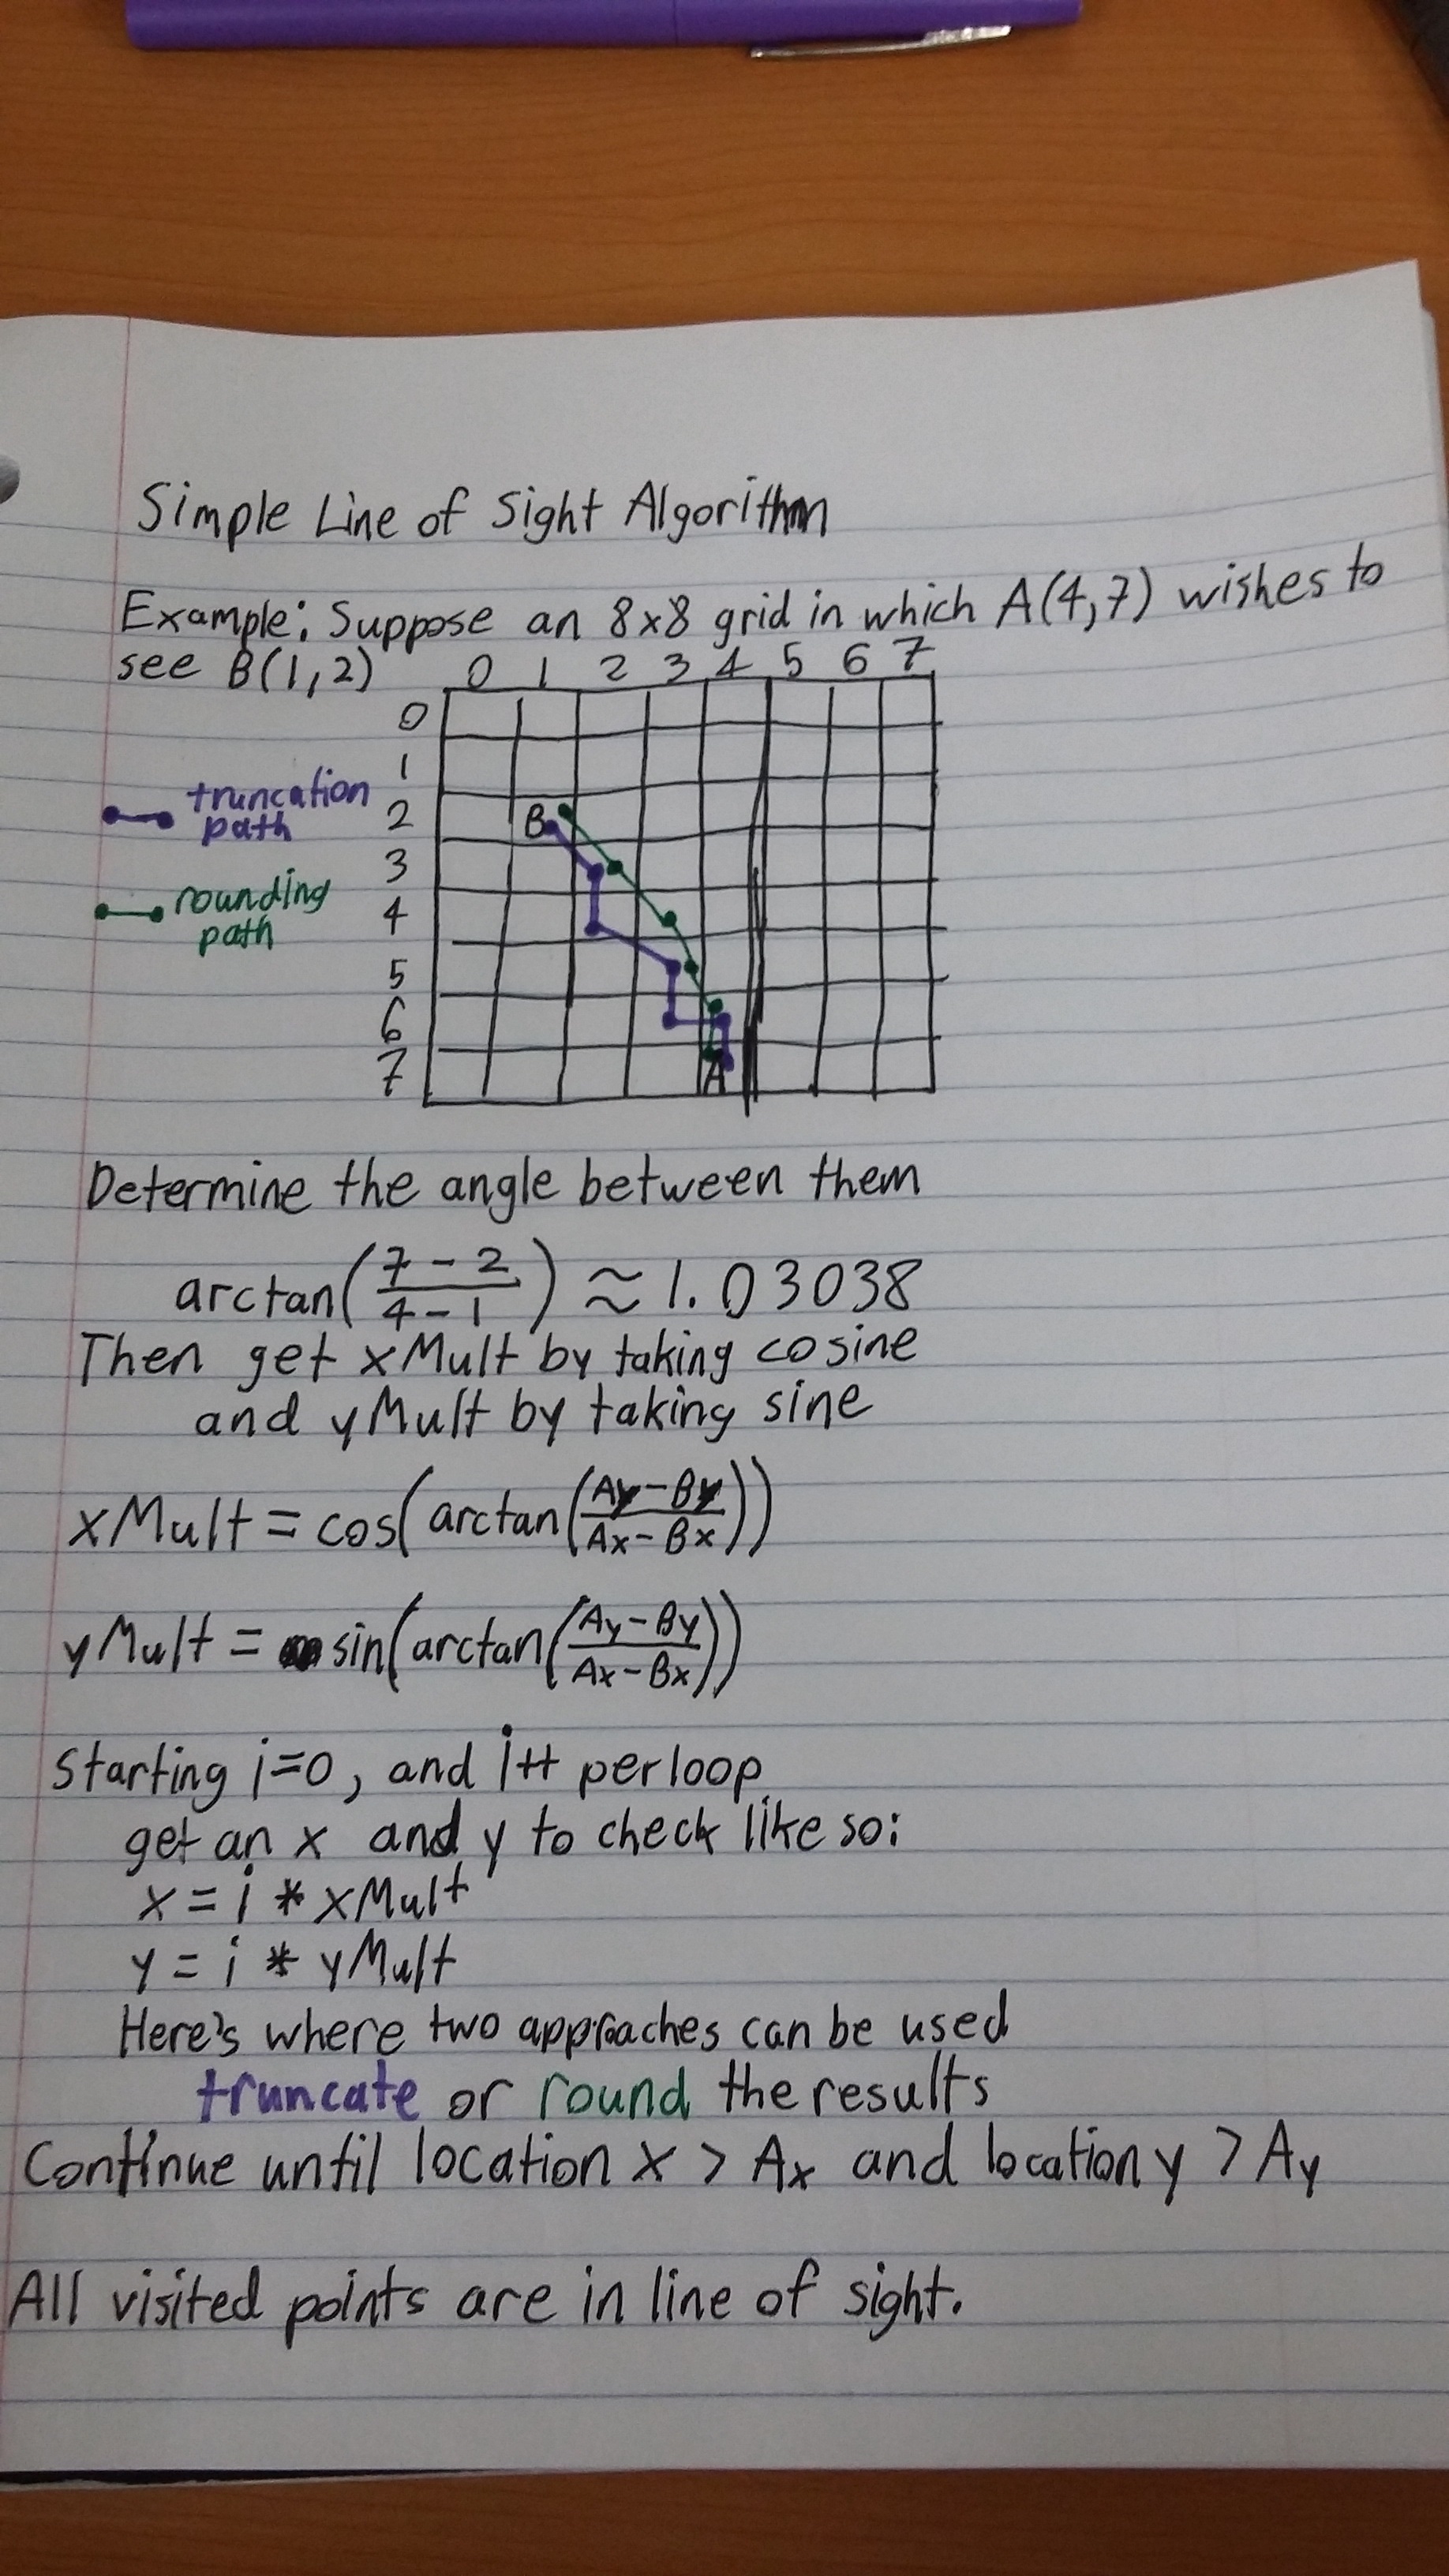 Simple Line of Sight Algorithm
Example: Suppose an 8x8 grid in which A(4,7) wishes to
see B(1,2)
0 1 2 3 4 5 6 7
0
1
truncation
path
2
B
3
rounding
path
4
5
6
7
A
Determine the angle between them
arctan((7-2)/(4-1)) ≈ 1.03038
Then get xMult by taking cosine
and yMult by taking sine
xMult = cos(arctan((Ay-By)/(Ax-Bx)))
yMult = sin(arctan((Ay-By)/(Ax-Bx)))
Starting i=0, and i++ per loop
get an x and y to check like so:
x = i * xMult
y = i * yMult
Here's where two approaches can be used
truncate or round the results
Continue until location x > Ax and location y > Ay
All visited points are in line of sight.